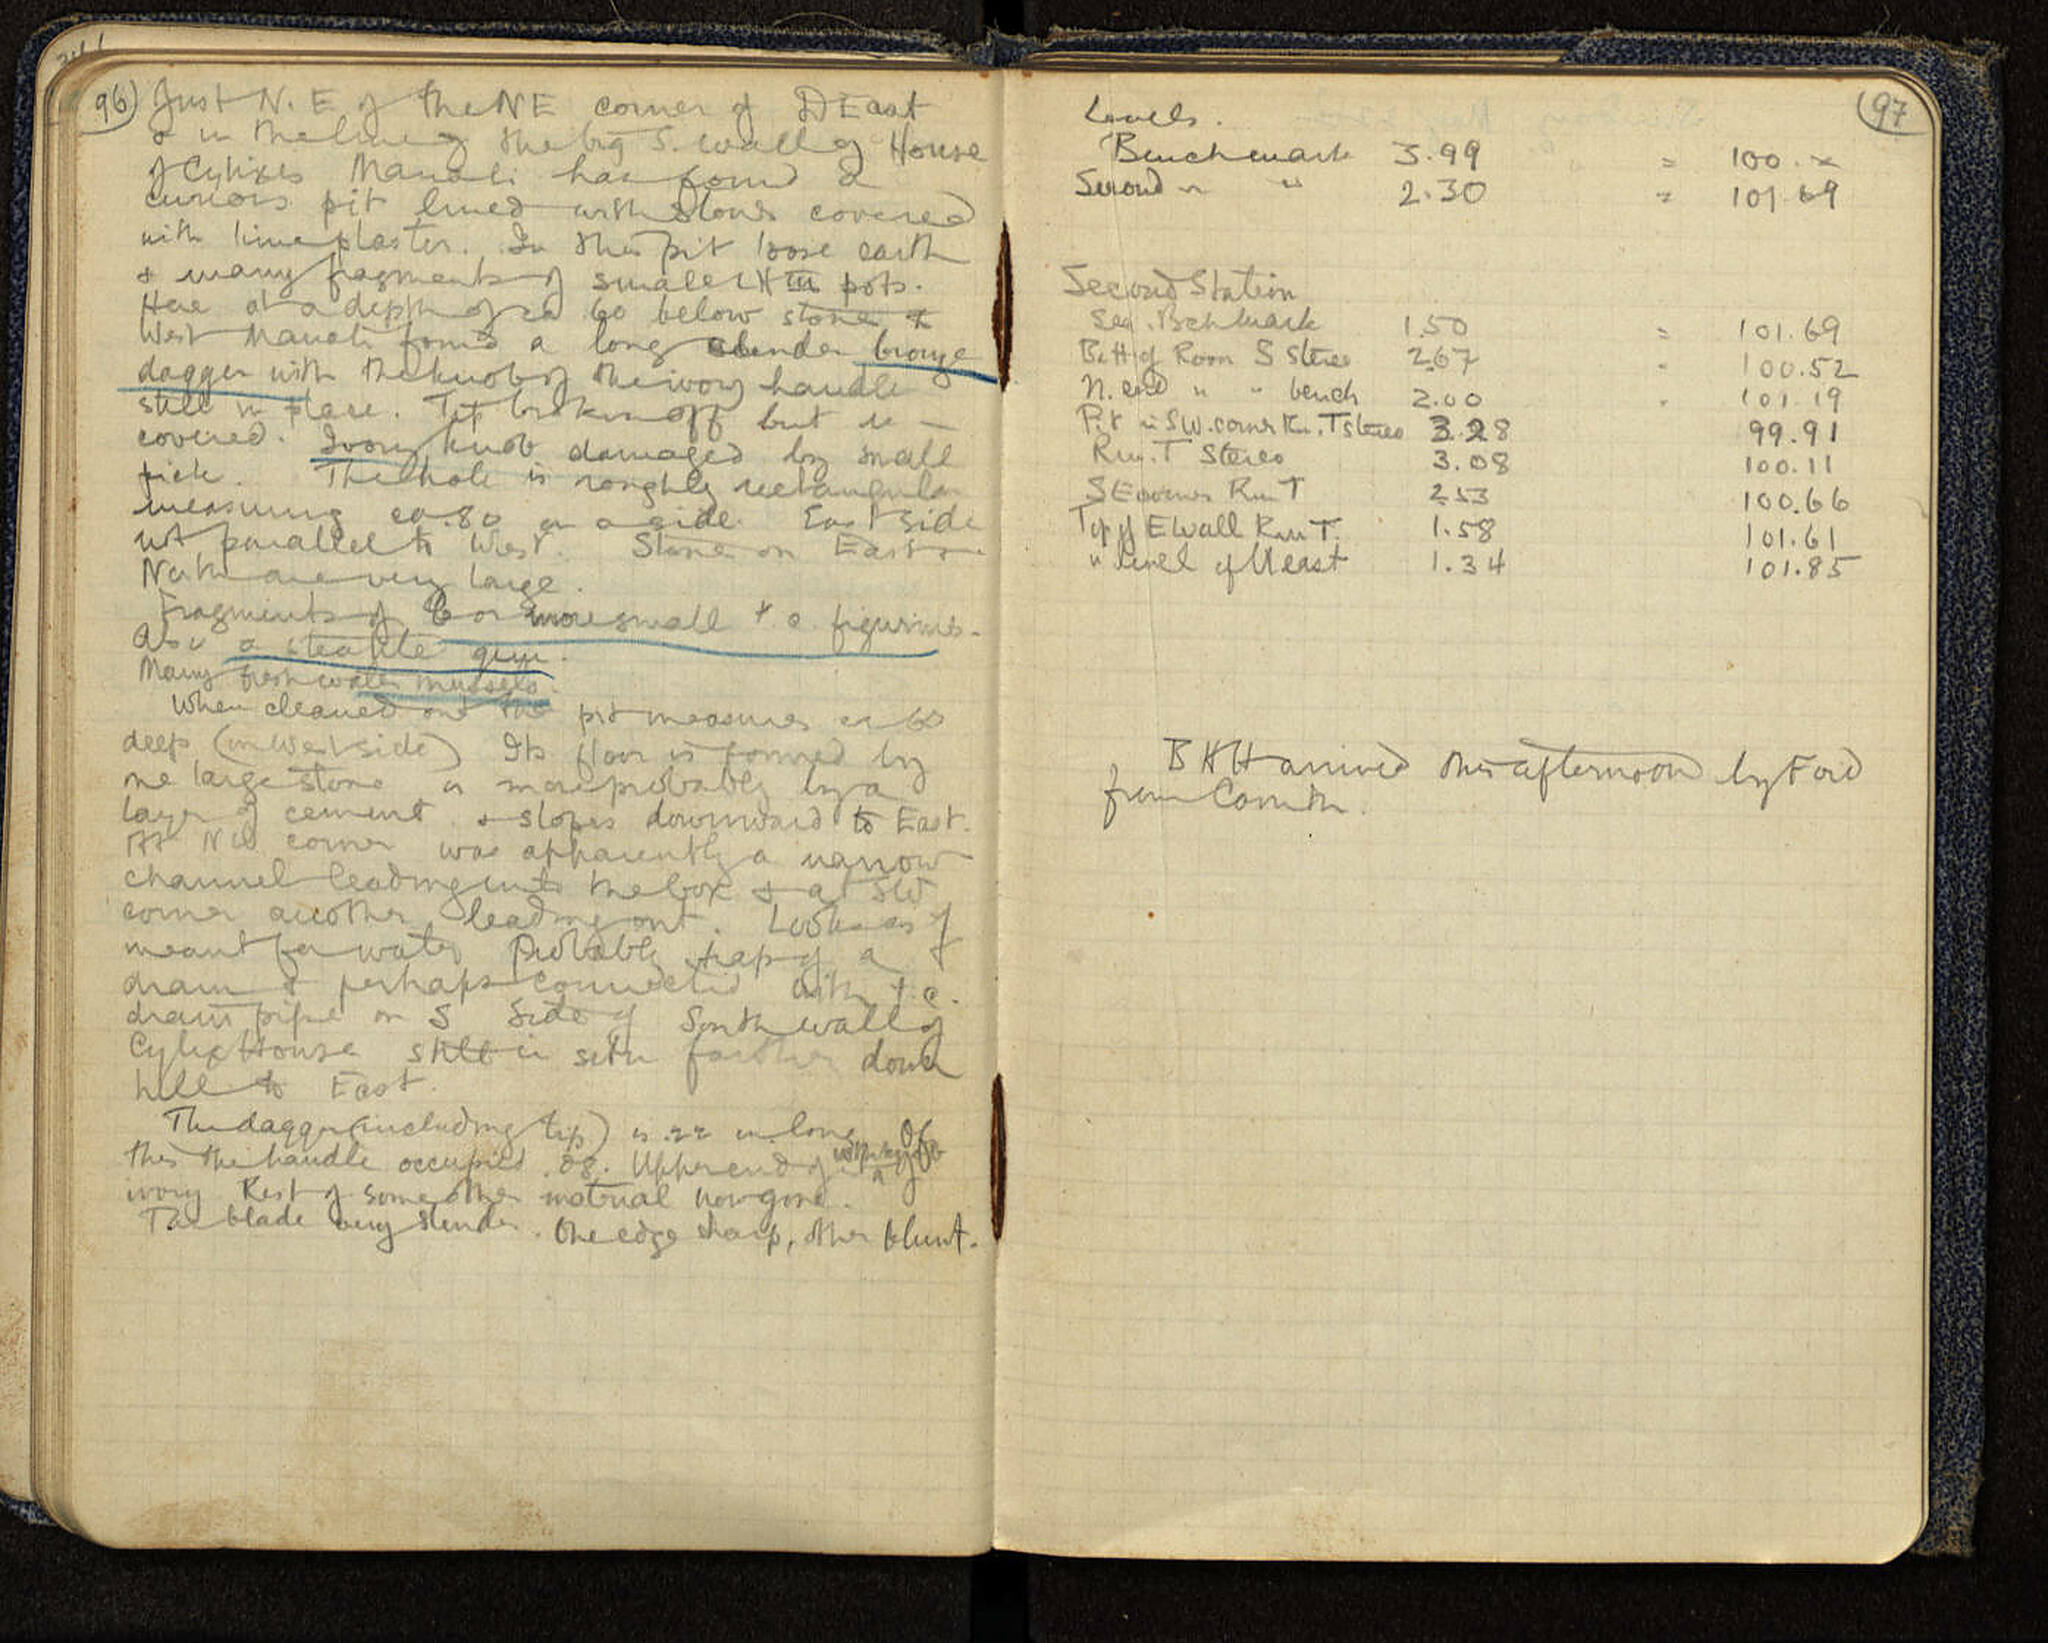 96) Just N.E of the NE corner of D East
& in the line of the big S. wall of House
of Cylixes Manoli has found a
curious pit lined with stones covered
with lime plaster. In this pit loose earth
& many fragments of small LH III pots.
Here at a depth of ca 60 below stone
West Manoli found a long slender bronze
dagger with the knob of the ivory handle
still in place. Tip broken off but re-
covered. Ivory knob damaged by small
pick. The hole is roughly rectangular
measuring ca .80 on a side. East side
not parallel to West. Stones on East &
North are very large.
Fragments of 6 or more small t.c. figurines.
Also a steatite gem.
Many fresh water mussels.
When cleaned out the pit measures
deep (on West side) Its floor is formed by
one large stone or more probably by a
layer of cement & slopes downward to East.
At NW corner was apparently a narrow
channel leading into the box & at SW
corner another leading out. Looks as if
meant for water Probably trap of a
drain & perhaps connected with t.c.
drain pipe on S side of South wall of
Cylix House still in situ farther down
hill to East.
The dagger (including tip) is .22 m. long Of
this the handle occupied .08. Upper end of
ivory Rest of some other material now gone.
The blade very slender. One edge sharp, other blunt.
97
Levels.
Benchmark 3.99 = 100.x
Second " " 2.30 = 101.69
Second Station
Sec. Bchmark 1.50 = 101.69
Bott of Room S Stereo 2.67 " 100.52
N. end " " bench 2.00 " 101.19
Pit in SW. corner Rm. T stereo 3.28 99.91
Rm. T Stereo 3.08 100.11
SE corner Rm T 2.53 100.66
Top of E wall Rm T. 1.58 101.61
" level of U east 1.34 101.85
BHH arrived this afternoon by Ford
from Corinth.